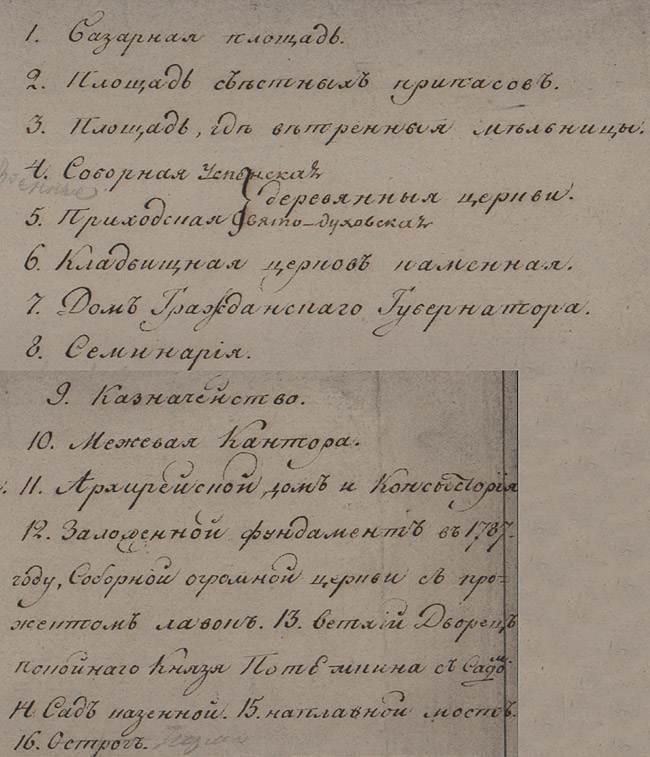 1. Базарная площадь.
2. Площадь съѣстныхъ припасовъ.
3. Площадь, гдѣ вѣтренныя мѣльницы.
4. Соборная Успенская
деревянныя церкви.
5. Приходская Свято-духовская
6. Кладбищная церковь каменная.
7. Домъ Гражданскаго Губернатора.
8. Семинарія.
9. Казначейство.
10. Межевая Кантора.
11. Архирейской домъ и Консысторія
12. Заложенной фундаментъ въ 1787.
году, Соборной огромной церкви съ про-
жектомъ лавокъ. 13. Ветхій Дворецъ
покойнаго Князя Потемкина съ Садомъ.
14 Садъ казенной. 15. наплавной мостъ.
16. Острогъ.